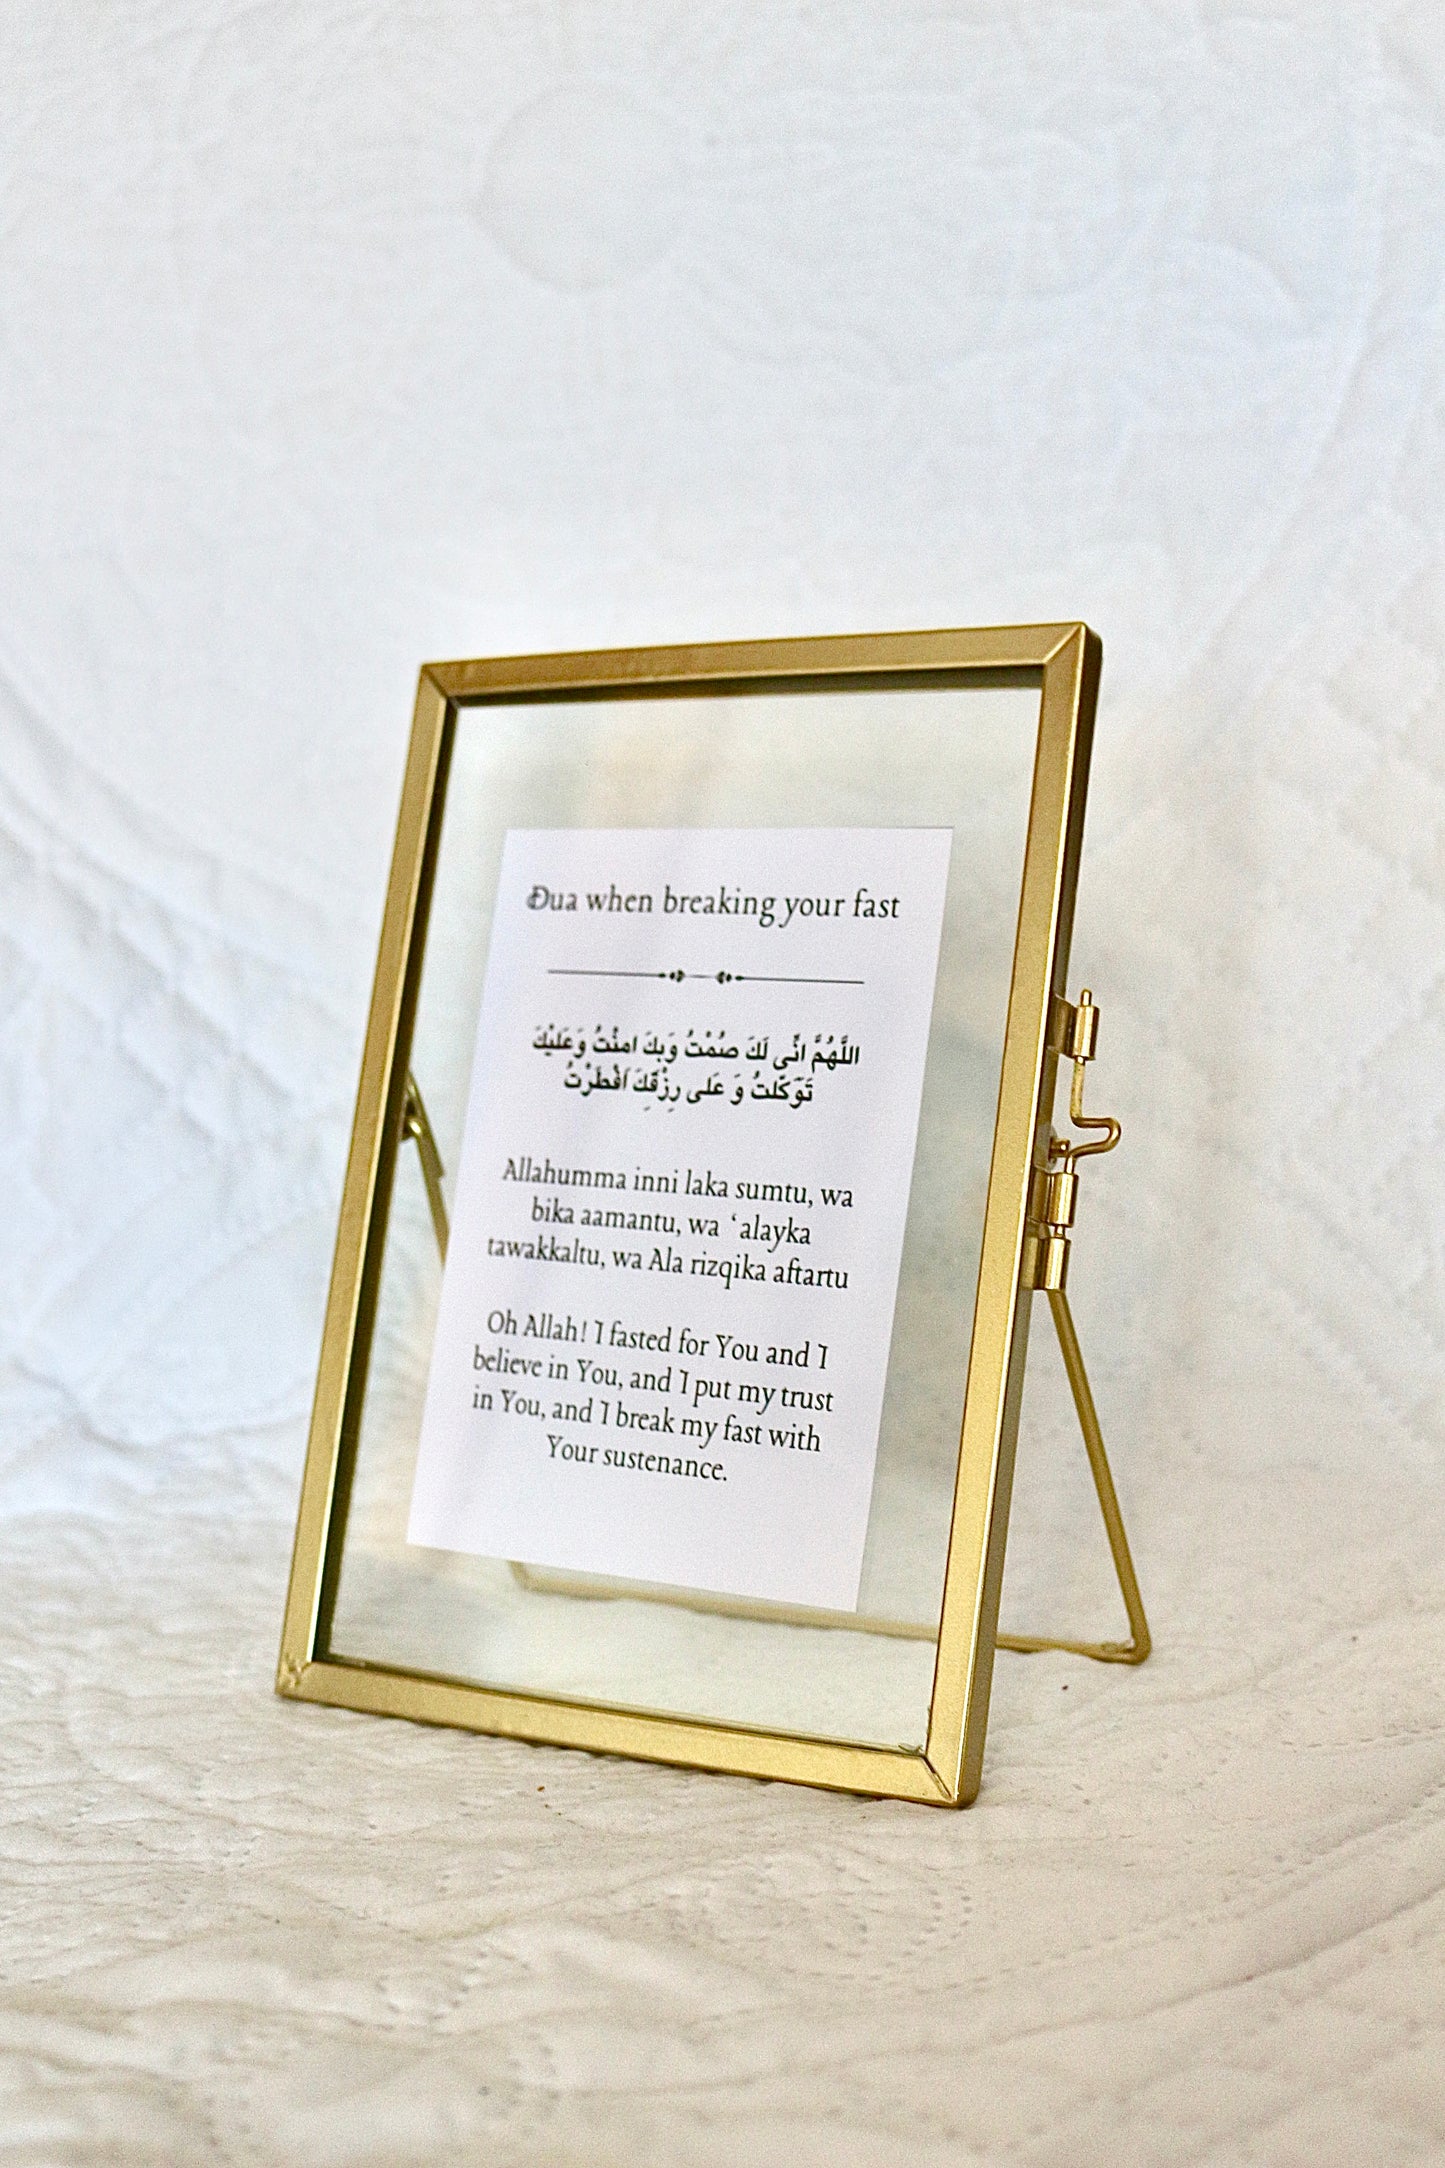 Dua when breaking your fast
اللَّهُمَّ انِّى لَكَ صُمْتُ وَبِكَ امنْتُ وَعَليْكَ
تَوَكّلتُ وَ عَلى رِزْقِكَ اَفْطَرْتُ
Allahumma inni laka sumtu, wa
bika aamantu, wa ‘alayka
tawakkaltu, wa Ala rizqika aftartu
Oh Allah! I fasted for You and I
believe in You, and I put my trust
in You, and I break my fast with
Your sustenance.